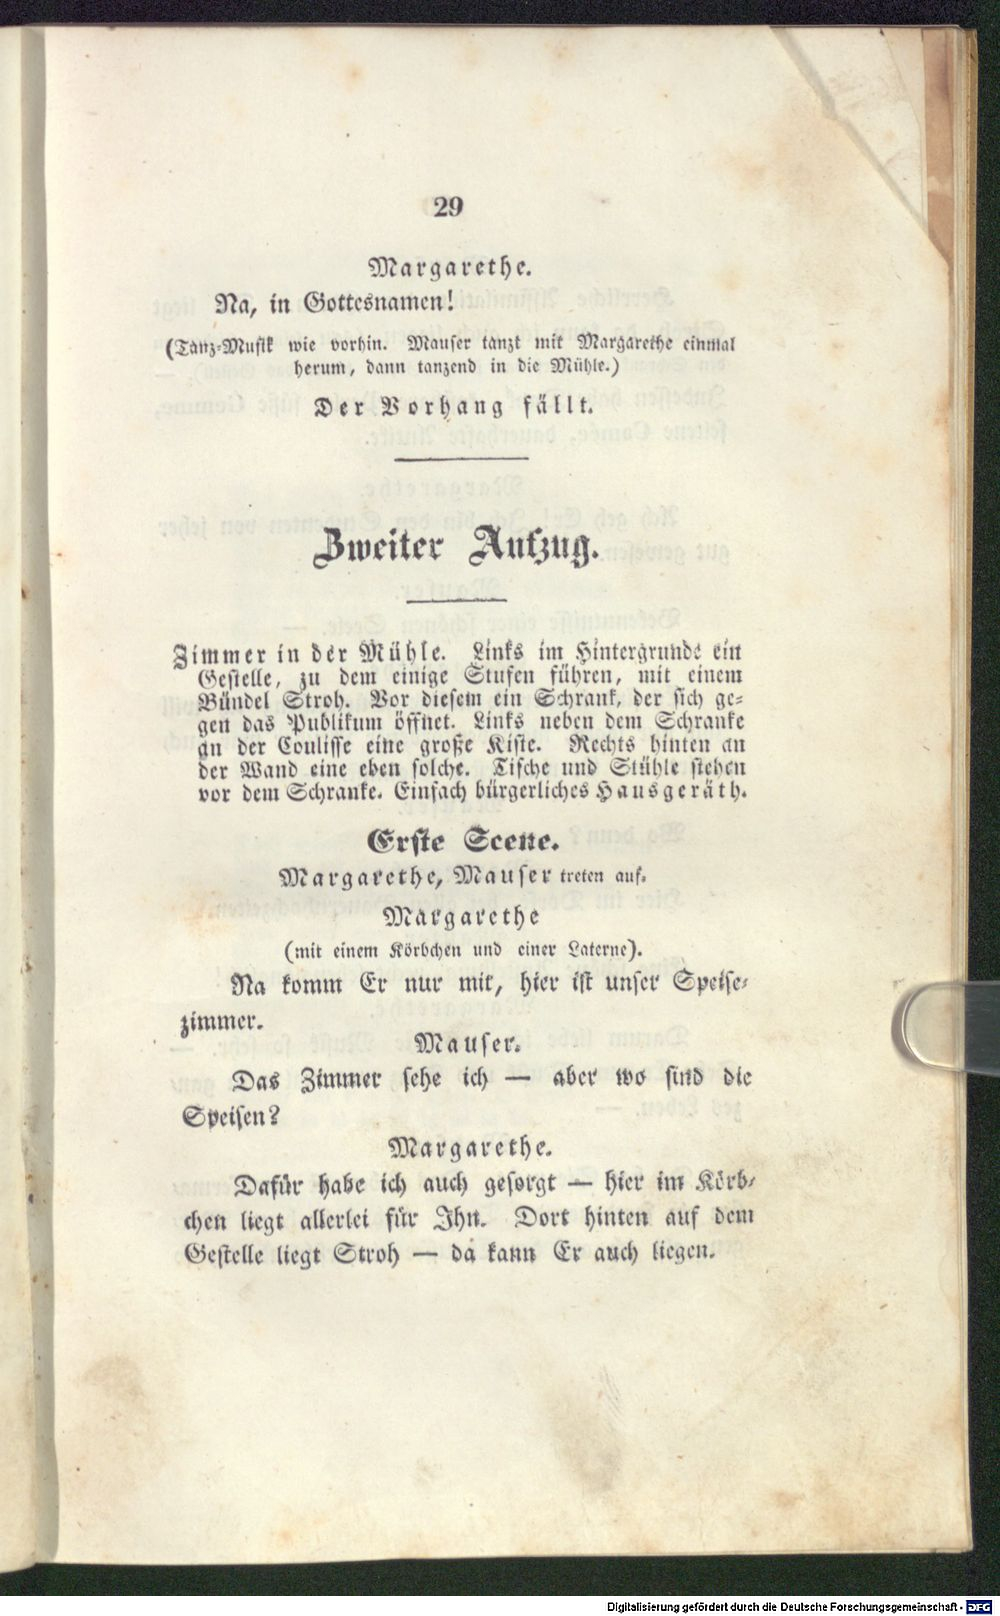 29
Margarethe.
Na, in Gottesnamen!
(Tanz-Musik wie vorhin. Mauser tanzt mit Margarethe einmal
herum, dann tanzend in die Mühle.)
Der Vorhang fällt.
Zweiter Aufzug.
Zimmer in der Mühle. Links im Hintergrunde ein
Gestelle, zu dem einige Stufen führen, mit einem
Bündel Stroh. Vor diesem ein Schrank, der sich ge-
gen das Publikum öffnet. Links neben dem Schranke
an der Coulisse eine große Kiste. Rechts hinten an
der Wand eine eben solche. Tische und Stühle stehen
vor dem Schranke. Einfach bürgerliches Hausgeräth.
Erste Scene.
Margarethe, Mauser treten auf.
Margarethe
(mit einem Körbchen und einer Laterne).
Na komm Er nur mit, hier ist unser Speise-
zimmer.
Mauser.
Das Zimmer sehe ich — aber wo sind die
Speisen?
Margarethe.
Dafür habe ich auch gesorgt — hier im Körb-
chen liegt allerlei für Ihn. Dort hinten auf dem
Gestelle liegt Stroh — da kann Er auch liegen.
Digitalisierung gefördert durch die Deutsche Forschungsgemeinschaft - DFG